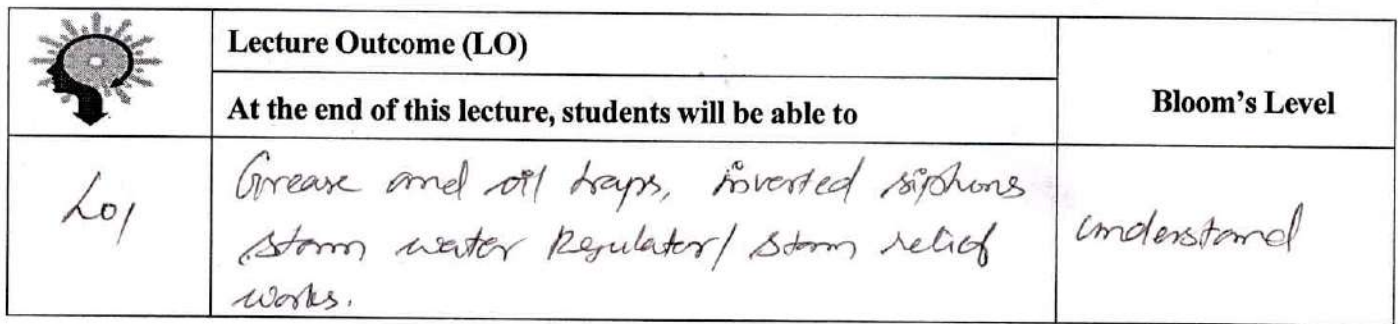 Lecture Outcome (LO)
At the end of this lecture, students will be able to
Bloom's Level
LO1
Grease and oil traps, inverted siphons
storm water Regulator/ storm relief
works.
understand